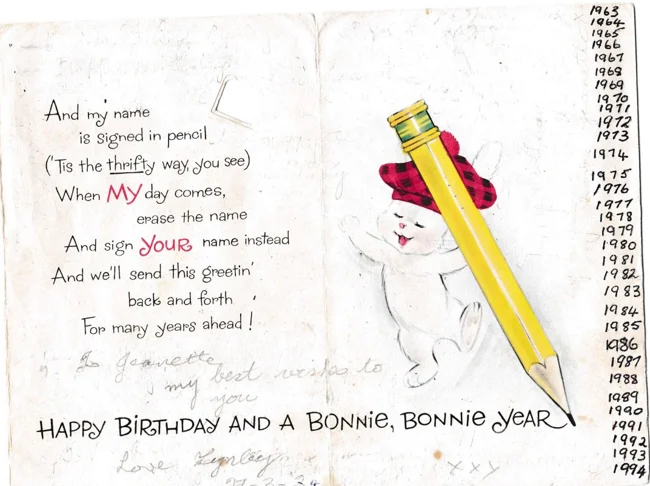 And my name
is signed in pencil
('Tis the thrifty way, you see)
When MY day comes,
erase the name
And sign YOUR name instead
And we'll send this greetin'
back and forth
For many years ahead!
To Jeanette
my best wishes to
you
HAPPY BIRTHDAY AND A BONNIE, BONNIE YEAR
Love Lynley
xxx
1963
1964
1965
1966
1967
1968
1969
1970
1971
1972
1973
1974
1975
1976
1977
1978
1979
1980
1981
1982
1983
1984
1985
1986
1987
1988
1989
1990
1991
1992
1993
1994